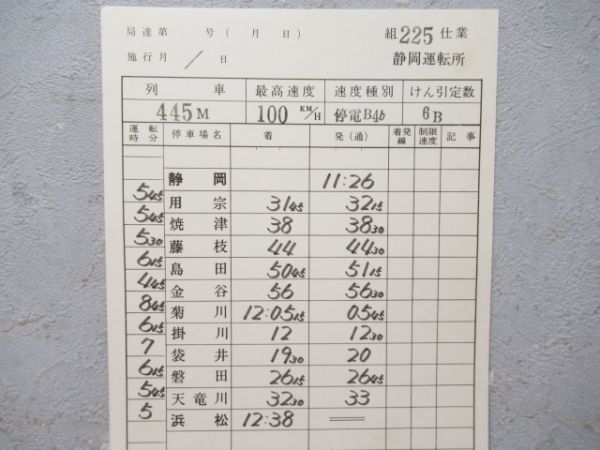 局達第　号(　月　日)　組225仕業
施行月　／　日　静岡運転所
列車　最高速度　速度種別　けん引定数
445M　100 KM/H　停電B46　6B
運転時分　停車場名　着　発(通)　着発線　制限速度　記事
静岡　11:26
5 45
用宗　31 45　32 15
5 45
焼津　38　38 30
5 30
藤枝　44　44 30
6 15
島田　50 45　51 15
4 45
金谷　56　56 30
8 45
菊川　12:05 15　05 45
6 15
掛川　12　12 30
7
袋井　19 30　20
6 15
磐田　26 15　26 45
5 45
天竜川　32 30　33
5
浜松　12:38